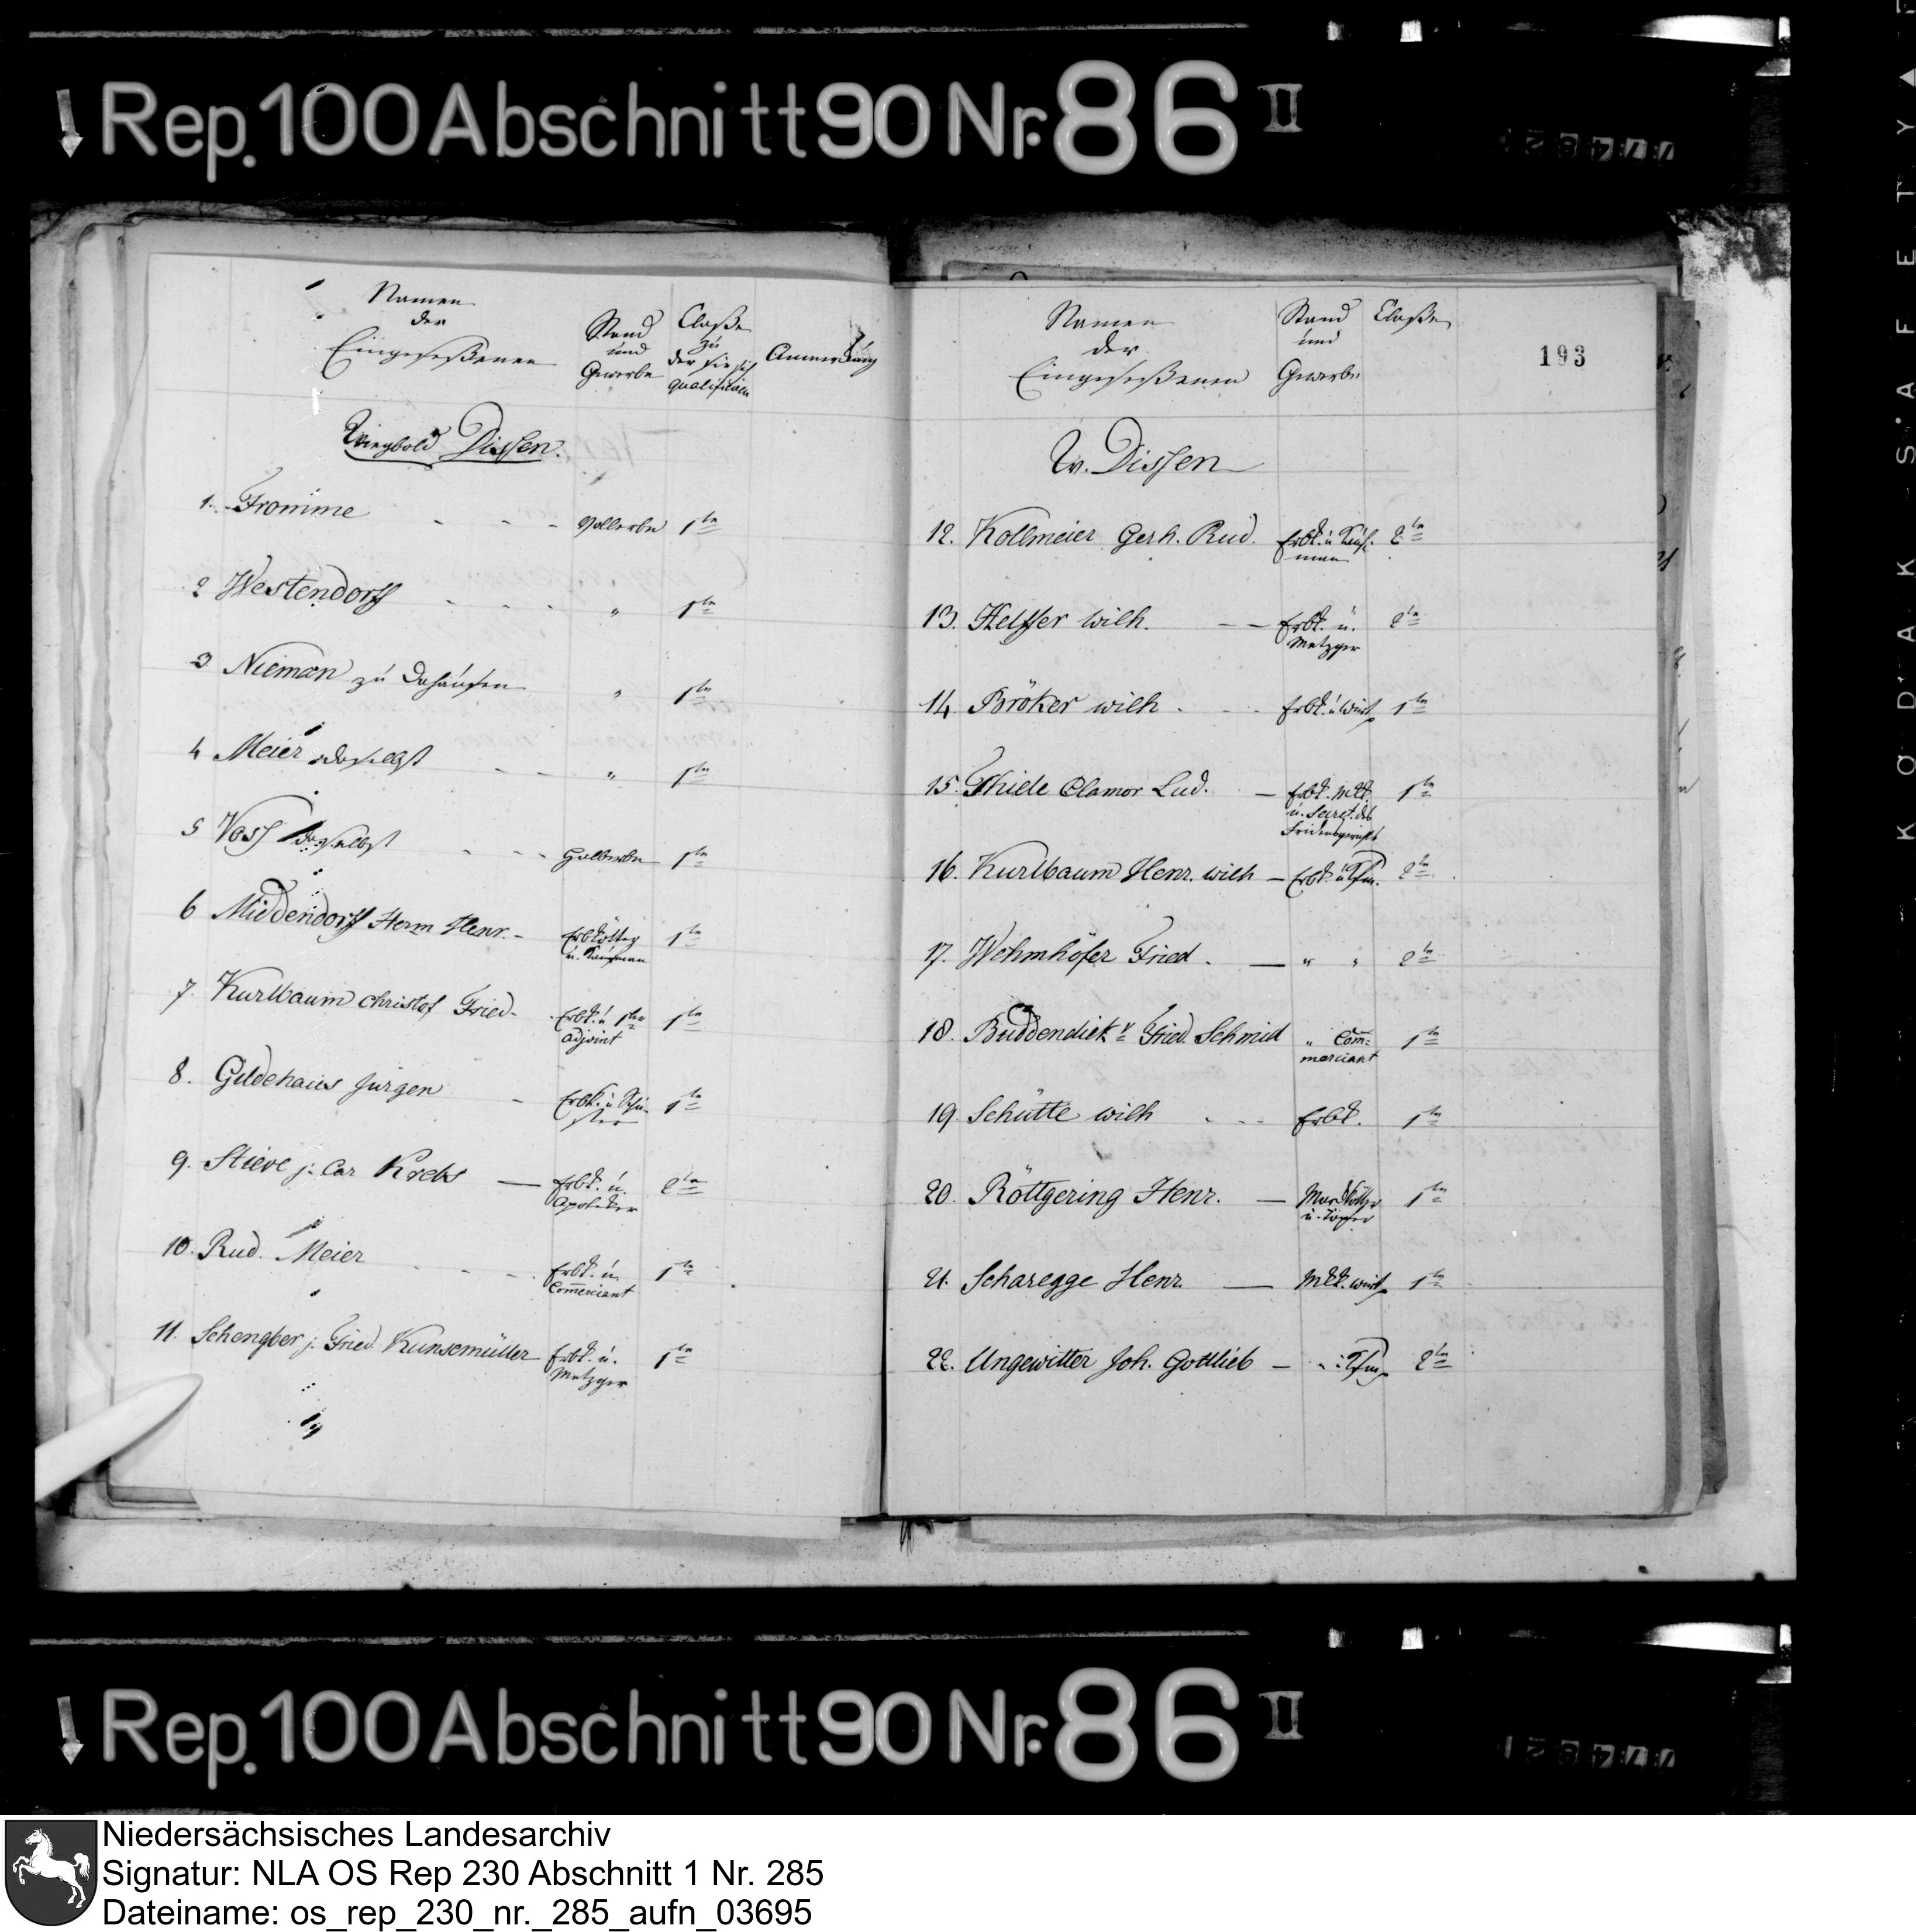 Rep. 100 Abschnitt 90 Nr. 86 II
Namen
der
Eingeseßenen
Stand
und
Gewerbe
Claße
zu
der sie sich
qualificiren
Anmerkung
Wiegbold Dissen.
1. Fromme - - - Vollerbe 1te
2 Westendorff - - - " 1te
3 Nieman zu " 1te
4 Meier daselbst - - " 1te
5 Voss daselbst - - - Halberbe 1te
6 Middendorff Herm Henr. - Erbkötter 1te
u. Kaufman
7. Kurlbaum Christof Fried - Erbk. u 1ter 1te
Adjoint
8. Gildehaus Jürgen - Erbk. u Schu- 1te
ster
9. Stieve j: Car Krebs — Erbk. u. 2te
Apoteker
10. Rud. Meier - - - Erbk. u. 1te
Commerciant
11. Schengber j: Fried Kunsemüller Erbk. u. 1te
Metzger
Namen
der
Eingeseßenen
Stand
und
Gewerbe
Claße
193
W. Dissen
12. Kollmeier Gerh. Rud. Erbk. u Kauf- 2te
man
13. Helfer wilh. — Erbk. u. 2te
Metzger
14. Bröker wilh - - - Erbk. u Wirt 1te
15. Thiele Clamor Lud. — Erbk. 1te
u. Secret. des
Fridensgerichts
16. Kurlbaum Henr. wilh — Erbk. u 2te
17. Wehmhöfer Fried. — " " 2te
18. Buddendiek v Fried. Schmid " Com= 1te
merciant
19. Schütte wilh - - - Erbk. 1te
20. Röttgering Henr. — Markkötter 1te
u. Töpfer
21. Scharegge Henr. — Mkk. Wirt 1te
22. Ungewitter Joh. Gottlieb — 2te
Rep. 100 Abschnitt 90 Nr. 86 II
KODAK SAFETY
Niedersächsisches Landesarchiv
Signatur: NLA OS Rep 230 Abschnitt 1 Nr. 285
Dateiname: os_rep_230_nr._285_aufn_03695